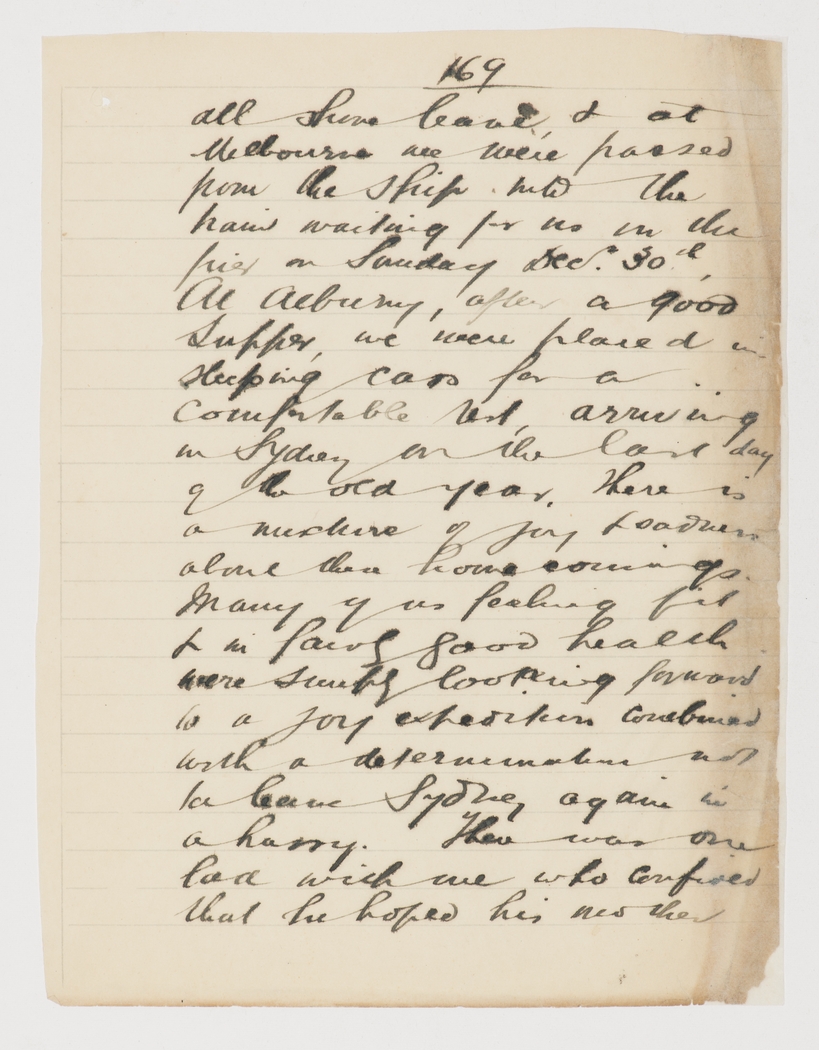 169
all shore leave, & at
Melbourne we were passed
from the ship into the
train waiting for us on the
pier on Sunday Dec. 30th,
At Albury, after a good
supper, we were placed in
sleeping cars for a
comfortable rest, arriving
in Sydney on the last day
of the old year. There is
a mixture of joy & sadness
about these home comings.
Many of us feeling fit
& in fairly good health
were simply looking forward
to a joy expedition combined
with a determination not
to leave Sydney again in
a hurry. There was one
lad with me who confided
that he hoped his mother